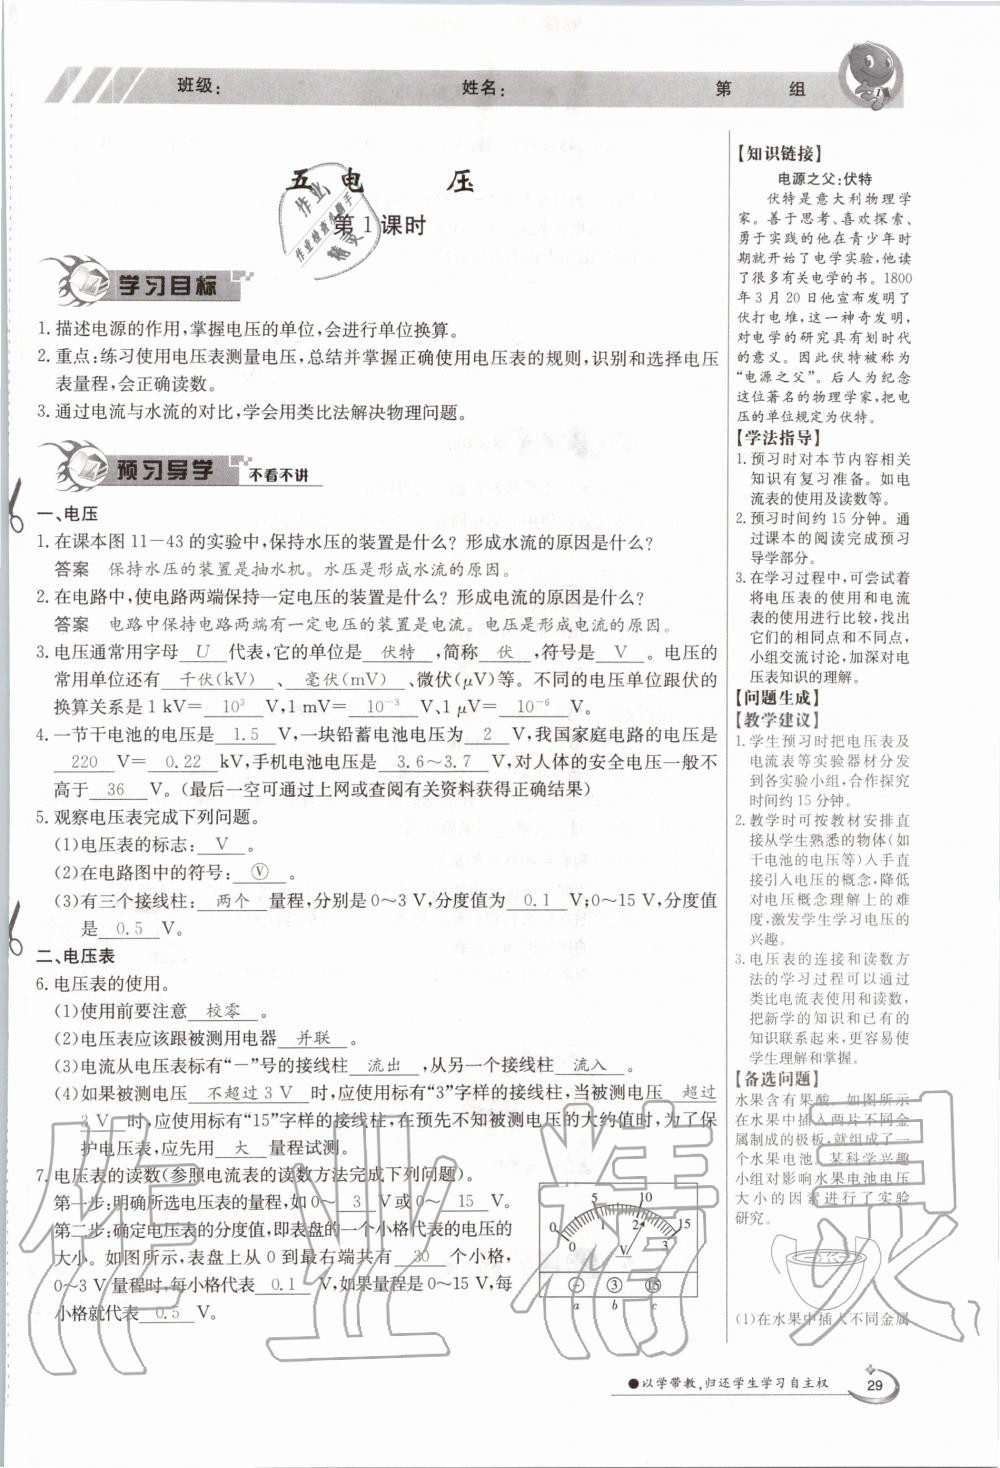 班级：
姓名：
第 组
五 电 压
第1课时
学习目标
1. 描述电源的作用,掌握电压的单位,会进行单位换算。
2. 重点:练习使用电压表测量电压,总结并掌握正确使用电压表的规则,识别和选择电压
表量程,会正确读数。
3. 通过电流与水流的对比,学会用类比法解决物理问题。
预习导学 不看不讲
一、电压
1. 在课本图 11-43 的实验中,保持水压的装置是什么? 形成水流的原因是什么?
答案 保持水压的装置是抽水机。水压是形成水流的原因。
2. 在电路中,使电路两端保持一定电压的装置是什么? 形成电流的原因是什么?
答案 电路中保持电路两端有一定电压的装置是电流。电压是形成电流的原因。
3. 电压通常用字母 U 代表,它的单位是 伏特 ,简称 伏 ,符号是 V 。电压的
常用单位还有 千伏(kV) 、 毫伏(mV) 、微伏(μV)等。不同的电压单位跟伏的
换算关系是 1 kV= 10³ V,1 mV= 10⁻³ V、1 μV= 10⁻⁶ V。
4. 一节干电池的电压是 1.5 V,一块铅蓄电池电压为 2 V,我国家庭电路的电压是
220 V= 0.22 kV,手机电池电压是 3.6~3.7 V,对人体的安全电压一般不
高于 36 V。(最后一空可通过上网或查阅有关资料获得正确结果)
5. 观察电压表完成下列问题。
(1)电压表的标志: V 。
(2)在电路图中的符号: Ⓥ 。
(3)有三个接线柱: 两个 量程,分别是 0~3 V,分度值为 0.1 V;0~15 V,分度值
是 0.5 V。
二、电压表
6. 电压表的使用。
(1)使用前要注意 校零 。
(2)电压表应该跟被测用电器 并联 。
(3)电流从电压表标有“-”号的接线柱 流出 ,从另一个接线柱 流入 。
(4)如果被测电压 不超过3V 时,应使用标有“3”字样的接线柱,当被测电压 超过
3V 时,应使用标有“15”字样的接线柱,在预先不知被测电压的大约值时,为了保
护电压表,应先用 大 量程试测。
7. 电压表的读数(参照电流表的读数方法完成下列问题)。
第一步:明确所选电压表的量程,如 0~ 3 V 或 0~ 15 V。
第二步:确定电压表的分度值,即表盘的一个小格代表的电压的
大小。如图所示,表盘上从 0 到最右端共有 30 个小格,
0~3 V 量程时,每小格代表 0.1 V,如果量程是 0~15 V,每
小格就代表 0.5 V。
0 5 10 15
0 1 2 3
V
- 3 15
a b c
【知识链接】
电源之父:伏特
伏特是意大利物理学
家。善于思考、喜欢探索、
勇于实践的他在青少年时
期就开始了电学实验,他读
了很多有关电学的书。1800
年 3 月 20 日他宣布发明了
伏打电堆,这一神奇发明,
对电学的研究具有划时代
的意义。因此伏特被称为
“电源之父”。后人为纪念
这位著名的物理学家,把电
压的单位规定为伏特。
【学法指导】
1. 预习时对本节内容相关
知识有复习准备。如电
流表的使用及读数等。
2. 预习时间约 15 分钟。通
过课本的阅读完成预习
导学部分。
3. 在学习过程中,可尝试着
将电压表的使用和电流
表的使用进行比较,找出
它们的相同点和不同点,
小组交流讨论,加深对电
压表知识的理解。
【问题生成】
【教学建议】
1. 学生预习时把电压表及
电流表等实验器材分发
到各实验小组,合作探究
时间约 15 分钟。
2. 教学时可按教材安排直
接从学生熟悉的物体(如
干电池的电压等)入手直
接引入电压的概念,降低
对电压概念理解上的难
度,激发学生学习电压的
兴趣。
3. 电压表的连接和读数方
法的学习过程可以通过
类比电流表使用和读数,
把新学的知识和已有的
知识联系起来,更容易使
学生理解和掌握。
【备选问题】
水果含有果酸。如图所示
在水果中插入两片不同金
属制成的极板,就组成了一
个水果电池。某科学兴趣
小组对影响水果电池电压
大小的因素进行了实验
研究。
(1)在水果中插入不同金属
●以学带教,归还学生学习自主权
29
作业精灵
作业
作业检查小助手
精灵